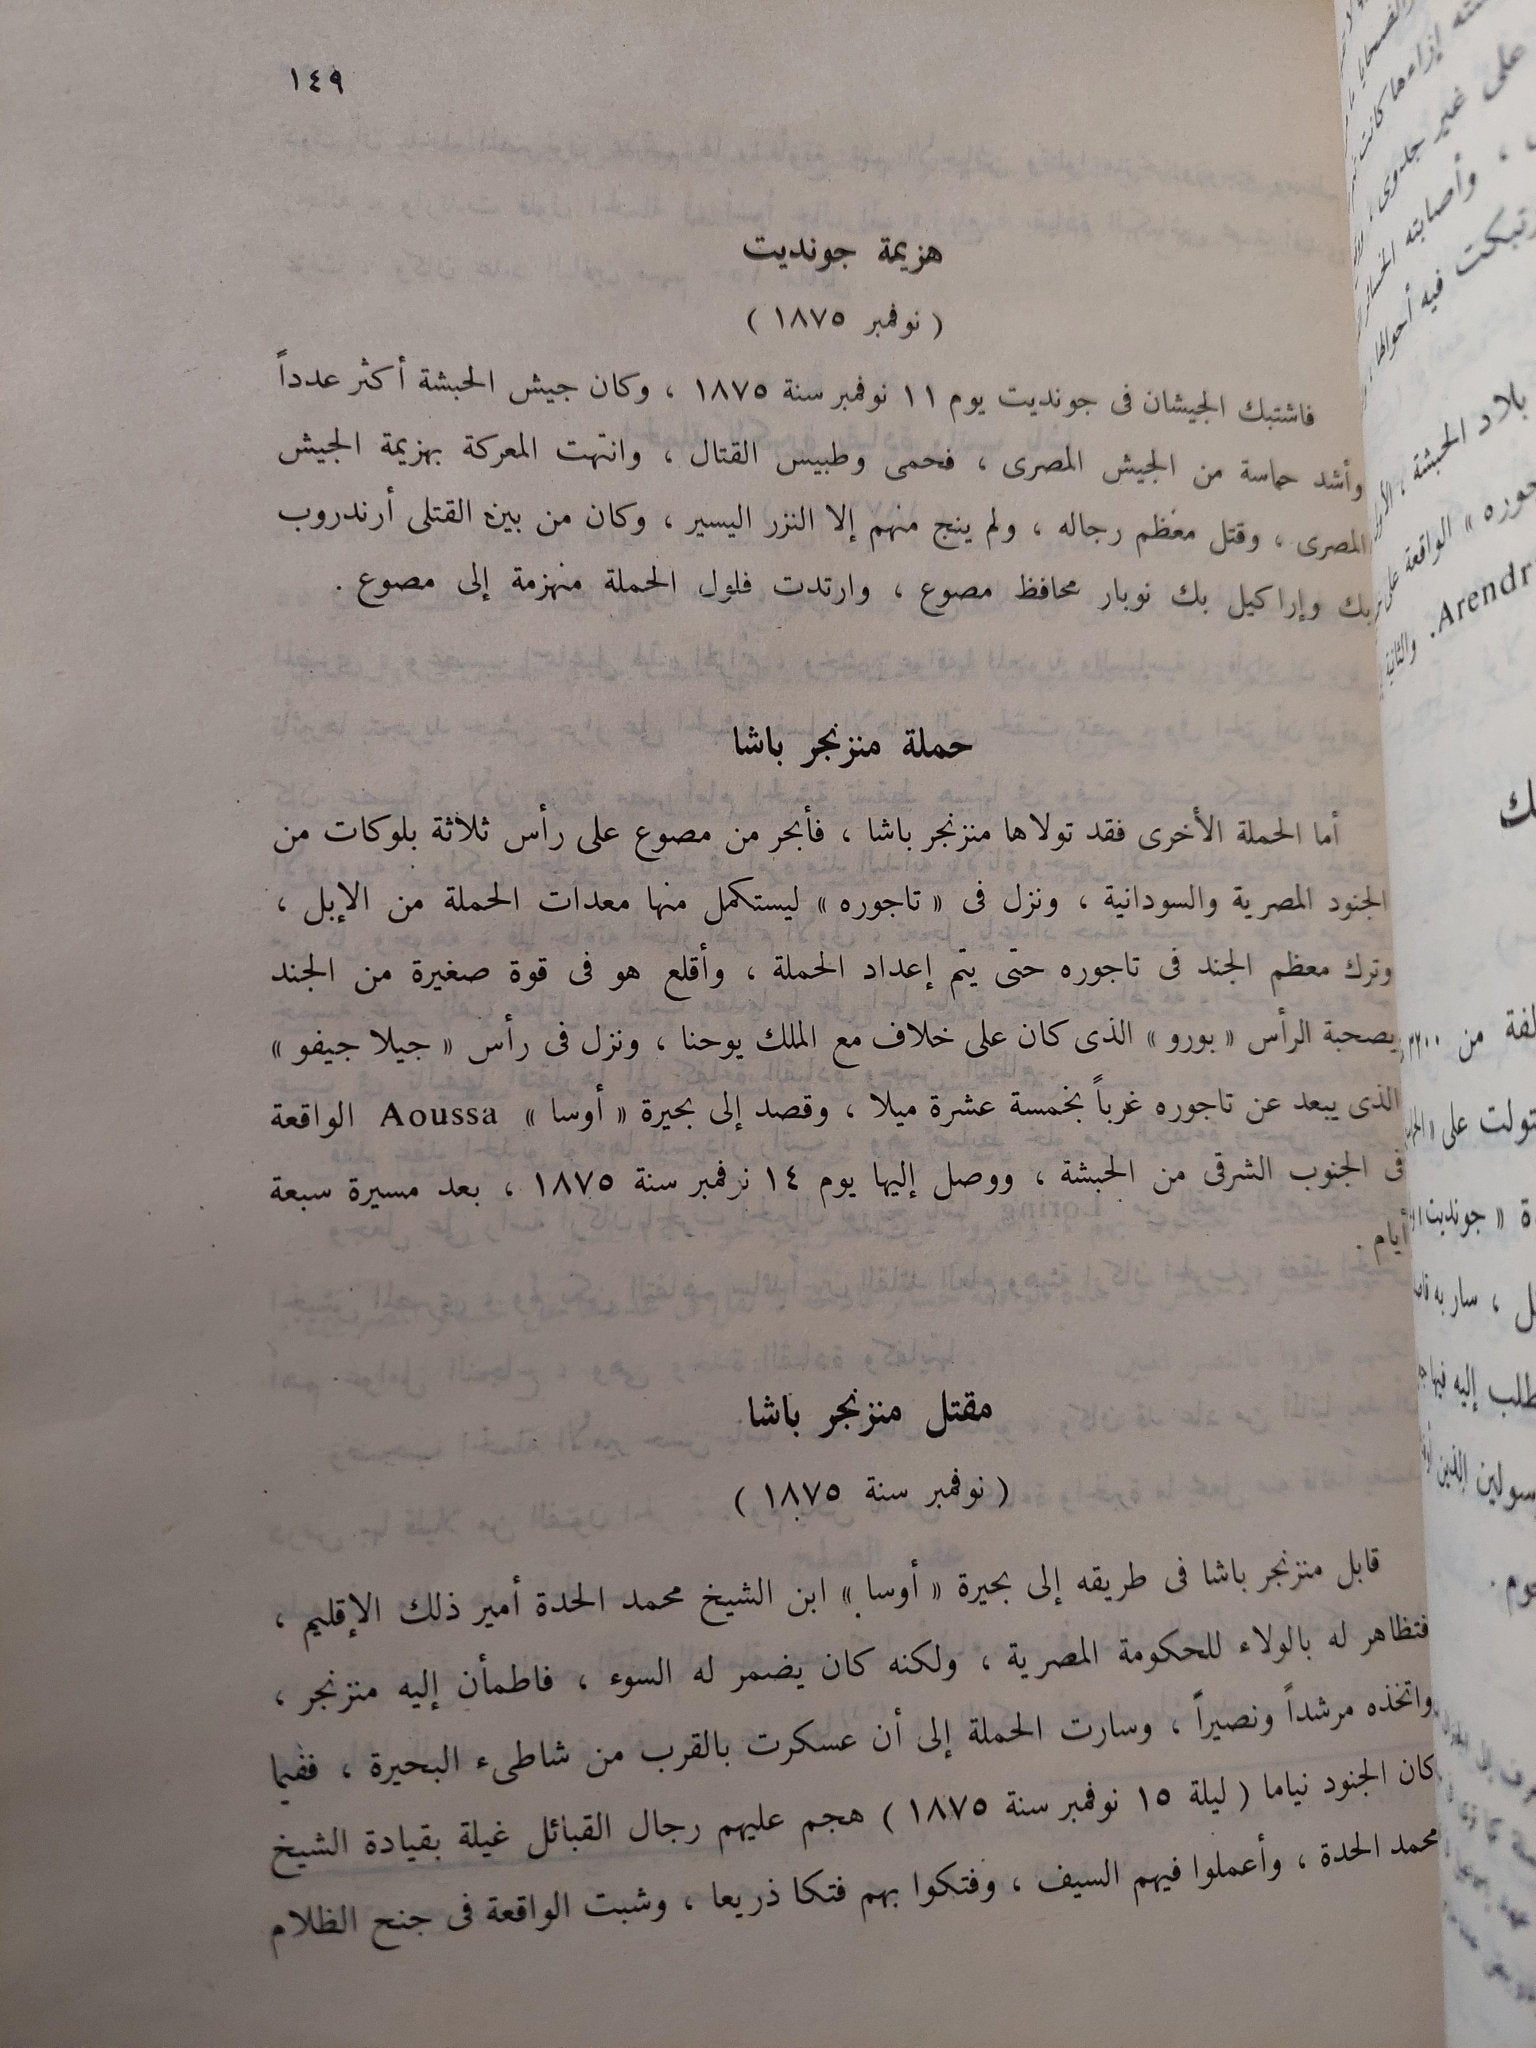 ١٤٩
هزيمة جونديت
( نوفمبر ١٨٧٥ )
فاشتبك الجيشان فى جونديت يوم ١١ نوفمبر سنة ١٨٧٥ ، وكان جيش الحبشة أكثر عدداً
وأشد حماسة من الجيش المصرى ، فحمى وطيس القتال ، وانتهت المعركة بهزيمة الجيش
المصرى ، وقتل معظم رجاله ، ولم ينج منهم إلا النزر اليسير ، وكان من بين القتلى أرندروب
بك وإراكيل بك نوبار محافظ مصوع ، وارتدت فلول الحملة منهزمة إلى مصوع .
حملة منزنجر باشا
أما الحملة الأخرى فقد تولاها منزنجر باشا ، فأبحر من مصوع على رأس ثلاثة بلوكات من
الجنود المصرية والسودانية ، ونزل فى « تاجوره » ليستكمل منها معدات الحملة من الإبل ،
وترك معظم الجند فى تاجوره حتى يتم إعداد الحملة ، وأقلع هو فى قوة صغيرة من الجند
بصحبة الرأس « بورو » الذى كان على خلاف مع الملك يوحنا ، ونزل فى رأس « جيلا جيفو »
الذى يبعد عن تاجوره غرباً بخمسة عشرة ميلا ، وقصد إلى بحيرة « أوسا » Aoussa الواقعة
فى الجنوب الشرقى من الحبشة ، ووصل إليها يوم ١٤ نوفمبر سنة ١٨٧٥ ، بعد مسيرة سبعة
أيام .
مقتل منزنجر باشا
( نوفمبر سنة ١٨٧٥ )
قابل منزنجر باشا فى طريقه إلى بحيرة « أوسا » ابن الشيخ محمد الحدة أمير ذلك الإقليم ،
فتظاهر له بالولاء للحكومة المصرية ، ولكنه كان يضمر له السوء ، فاطمأن إليه منزنجر ،
واتخذه مرشداً ونصيراً ، وسارت الحملة إلى أن عسكرت بالقرب من شاطىء البحيرة ، ففيما
كان الجنود نياما ( ليلة ١٥ نوفمبر سنة ١٨٧٥ ) هجم عليهم رجال القبائل غيلة بقيادة الشيخ
محمد الحدة ، وأعملوا فيهم السيف ، وفتكوا بهم فتكا ذريعا ، وشبت الواقعة فى جنح الظلام